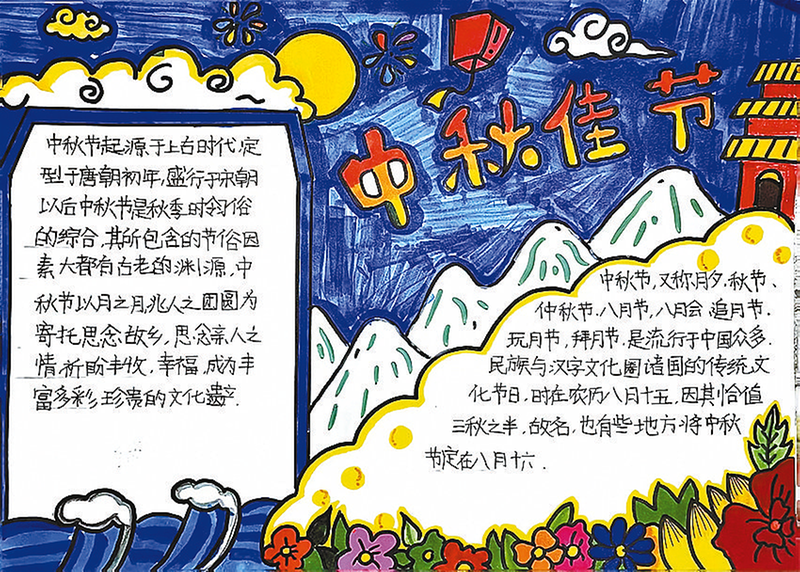 中秋佳节
中秋节起源于上古时代,定
型于唐朝初年,盛行于宋朝
以后中秋节是秋季时令习俗
的综合,其所包含的节俗因
素大都有古老的渊源,中
秋节以月之月兆人之团圆为
寄托思念故乡,思念亲人之
情,祈盼丰收,幸福,成为丰
富多彩珍贵的文化遗产.
中秋节,又称月夕.秋节、
仲秋节.八月节,八月会.追月节.
玩月节,拜月节.是流行于中国众多.
民族与汉字文化圈诸国的传统文
化节日,时在农历八月十五,因其恰值
三秋之半,故名,也有些地方将中秋
节定在八月十六.